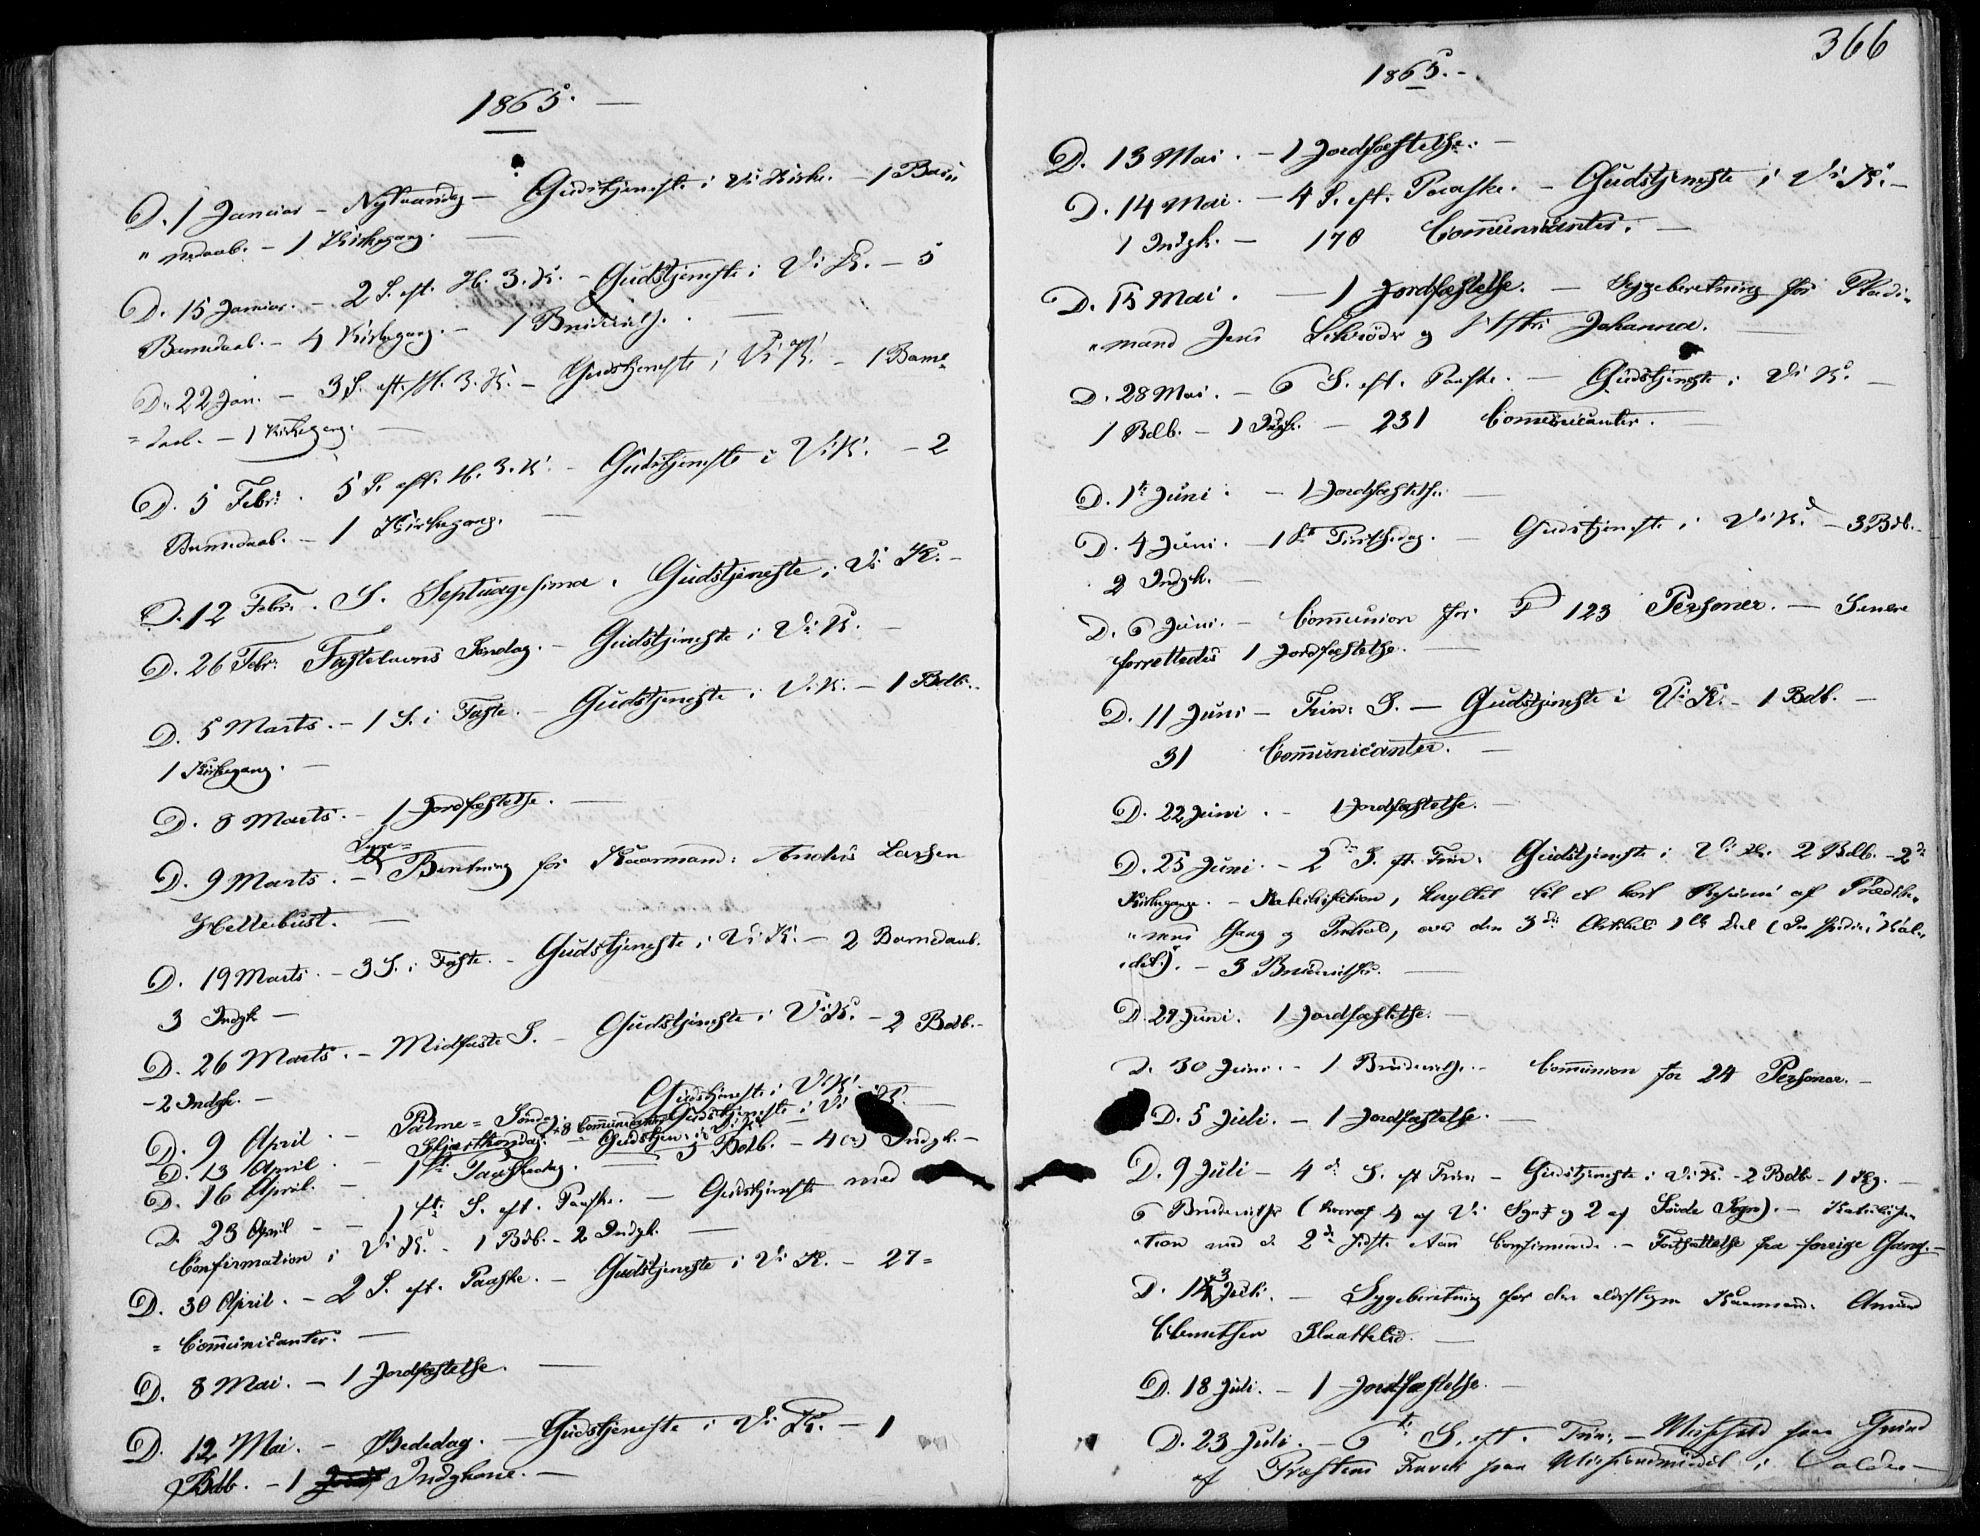 1865. —
D. 1 Januar – Nytaarsdag – Gudstjeneste i Vi Kirke. – 1 Barn
" nedaab. – 1 Kirkegang. —
D. 15 Januar. – 2 S. eft. H. 3. K. – Gudstjeneste i Vi K. – 5
Barnedaab. – 4 Kirkegang. – 1 Brudevielse. —
D. 22 Jan. – 3 S. eft. H. 3. K. – Gudstjeneste i Vi K. – 1 Barne-
= daab. – 1 Kirkegang. —
D. 5 Febr. 5 S. eft. H. 3. K. – Gudstjeneste i Vi K. – 2
Barnedaab. – 1 Kirkegang. —
D. 12 Febr. S. Septuagesima. Gudstjeneste i Vi K. –
D. 26 Febr: Fastelavns Søndag. – Gudstjeneste i Vi K. —
D. 5 Marts. – 1 S. i Faste. – Gudstjeneste i Vi K. – 1 Bdb. –
1 Kirkegang. —
D. 8 Marts. – 1 Jordfæstelse. —
D. 9 Marts. – Beretning for Kaarmand: Anders Larsen
Hellebust. —
D. 19 Marts. – 3 S. i Faste. – Gudstjeneste i Vi K. – 2 Barnedaab.
3 Indgk. —
D. 26 Marts. – Midfaste S. – Gudstjeneste i Vi K. – 2 Bdb. –
– 2 Indgk. –
D. 9 April. – Palme = Søndag. Gudstjeneste i Vi K. –
D. 13 April. – Skjærthorsdag. – Gudstjeneste i Vi K. –
D. 16 April. – 1ste Paaskedag. – Gudstjen: i Vi K. 5 Bdb. – 4 Indgk. –
D. 23 April – 1ste S. eft. Paaske. – Gudstjeneste med
Confirmation i Vi K. – 1 Bdb. – 2 Indgk. —
D. 30 April. – 2 S. eft. Paaske. – Gudstjeneste i Vi K. – 27 =
= Communicanter. —
D. 8 Mai. – 1 Jordfæstelse. —
D. 12 Mai. – Bededag. – Gudstjeneste i Vi K. – 1
Bdb. – 1 Indgkone. –
366
1865. –
D. 13 Mai. – 1 Jordfæstelse. –
D. 14 Mai. – 4 S. eft. Paaske. – Gudstjeneste i Vi K. –
1 Indgk. – 170 Communicanter. —
D. 15 Mai. – 1 Jordfæstelse. – Sygeberetning for
" mand Jens og Johanna. —
D. 28 Mai. – 6 S. eft. Paaske. – Gudstjeneste i Vi K. –
1 Bdb. – 1 Indgk. – 231 Communicanter. –
D. 1ste Juni. – 1 Jordfæstelse. —
D. 4 Juni. – 1ste Pintsedag. – Gudstjeneste i Vi K. – 3 Bdb. –
2 Indgk. –
D. 6 Juni. – Communion for 123 Personer. – Senere
forrettedes 1 Jordfæstelse. –
D. 11 Juni – Trin: S. – Gudstjeneste i Vi K. – 1 Bdb. –
31 Communicanter. –
D. 22 Juni. – 1 Jordfæstelse. –
D. 25 Juni – 2den S. eft. Trin: Gudstjeneste i Vi K. 2 Bdb. – 2de
Kirkegange. – Katechisation, knyttet til et kort Resumé af Prædike-
" nens Gang og Indhold, over den 3die Artikels 1ste Deel
– 3 Brudevielser. —
D. 29 Juni. 1 Jordfæstelse. –
D. 30 Juni. – 1 Brudevielse. – Communion for 24 Personer. –
D. 5 Juli. – 1 Jordfæstelse. –
D. 9 Juli – 4de S. eft Trin – Gudstjeneste i Vi K. – 2 Bdb – 1 Kg. –
6 Brudevielser (hvoraf 4 af Vi Sogn og 2 af Sogn). –
" tion med de 2de sidste Aars Confirmerede. – Fortsættelse fra forrige Gang. –
D. 13 Juli. – Sygeberetning for den Kaarmand:
Clemetsen —
D. 18 Juli. – 1 Jordfæstelse. –
D. 23 Juli. – 6te S. eft. Trin: –
af i Volden –